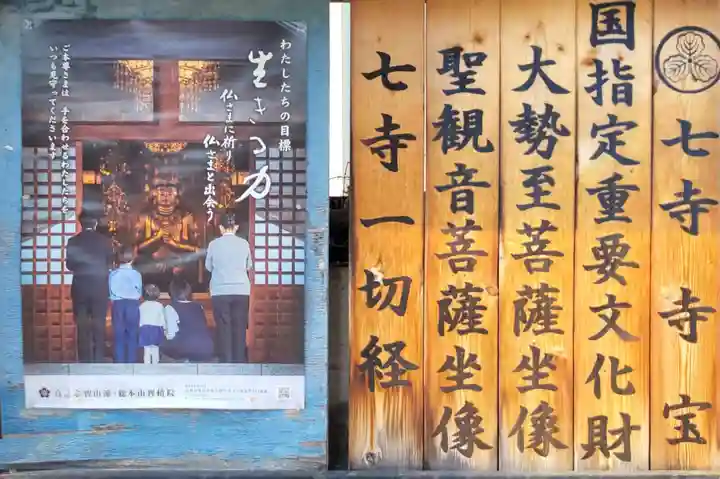 わたしたちの目標
生きる力
仏さまに祈り
仏さまと出会う
ご本尊さまは 手を合わせるわたしたちを
いつも見守ってくださいます
真言宗智山派・総本山智積院
七寺 寺宝
国指定重要文化財
大勢至菩薩坐像
聖観音菩薩坐像
七寺一切経